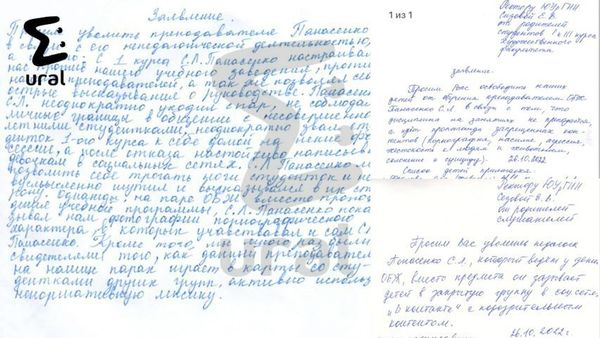 Заявление
Прошу уволить преподавателя Панасенко
в связи с его непедагогической деятельностью,
С 1 курса С.Л. Панасенко настраивал
нас против нашего учебного заведения, против
преподавателей, а так же позволял себе
острые высказывания о руководстве. Панасенко
С.Л. неоднократно уходил с пар, не соблюдал
личные границы в общении с несовершенно-
летними студентками, неоднократно звал
1-ого курса к себе домой на
сессии, а после отказа настойчиво написывал
девочкам в социальных сетях. Панасенко
позволить себе трогать ноги студенток и не
шутил и высказывался в их сто-
рону. Однажды, на паре ОБЖ, вместо прохож-
дения учебной программы, С.Л. Панасенко пока-
зывал нам фотографии порнографического
характера, в которых участвовал и сам С.Л.
Панасенко. Кроме того, мы
свидетелями того, как данный преподаватель
на наших парах играет в карты со сту-
дентками других групп, активно использу
ненормативную лексику.
ural
ural
1 из 1
Ректору ЮУрГИИ
Сизовой Е.В.
от родителей
студентов I и III курса
Художественного
факультета.
заявление.
Просим Вас освободить наших
детей от обучения преподавателем ОБЖ
Панасенко С.Л. в связи с тем, что
дисциплина на занятиях не
а идёт пропаганда запрещенных кон-
тентов (порнография, насилие, агрессия,
жестокость по отношению к животным,
склонение к суициду).
26.10.2022
Список детей
Ректору ЮУрГИИ
Сизовой Е.В.
от родителей
Просим Вас уволить педагога
Панасенко С.Л., который ведет у детей
ОБЖ, вместо предмета он зазывает
детей в закрытую группу в соц.сети
"В контакте" с подозрительным
контентом.
26.10.2022г.